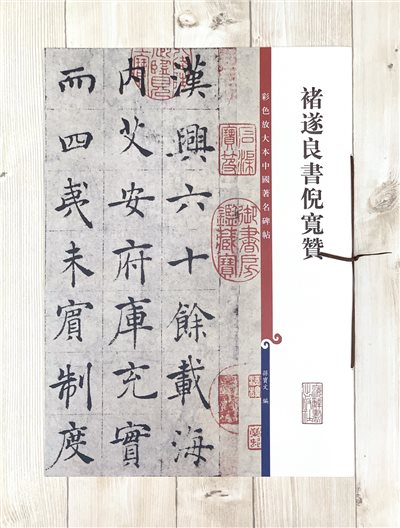 褚遂良書倪寬贊
彩色放大本中國著名碑帖
孫寶文 編
漢興六十餘載海
内艾安府庫充實
而四夷未賓制度
石渠寶笈
御書房鑑藏寶